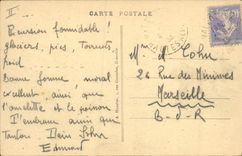 CARTE POSTALE
II
Excursion formidable !
glaciers, pics, torrents
froid
Bonne forme, moral
excellent, ainsi que
l'omelette et le poisson
J'embrasse ainsi que
Edmond
M. A Cohn
26 Rue des Minimes
Marseille
B-d-R